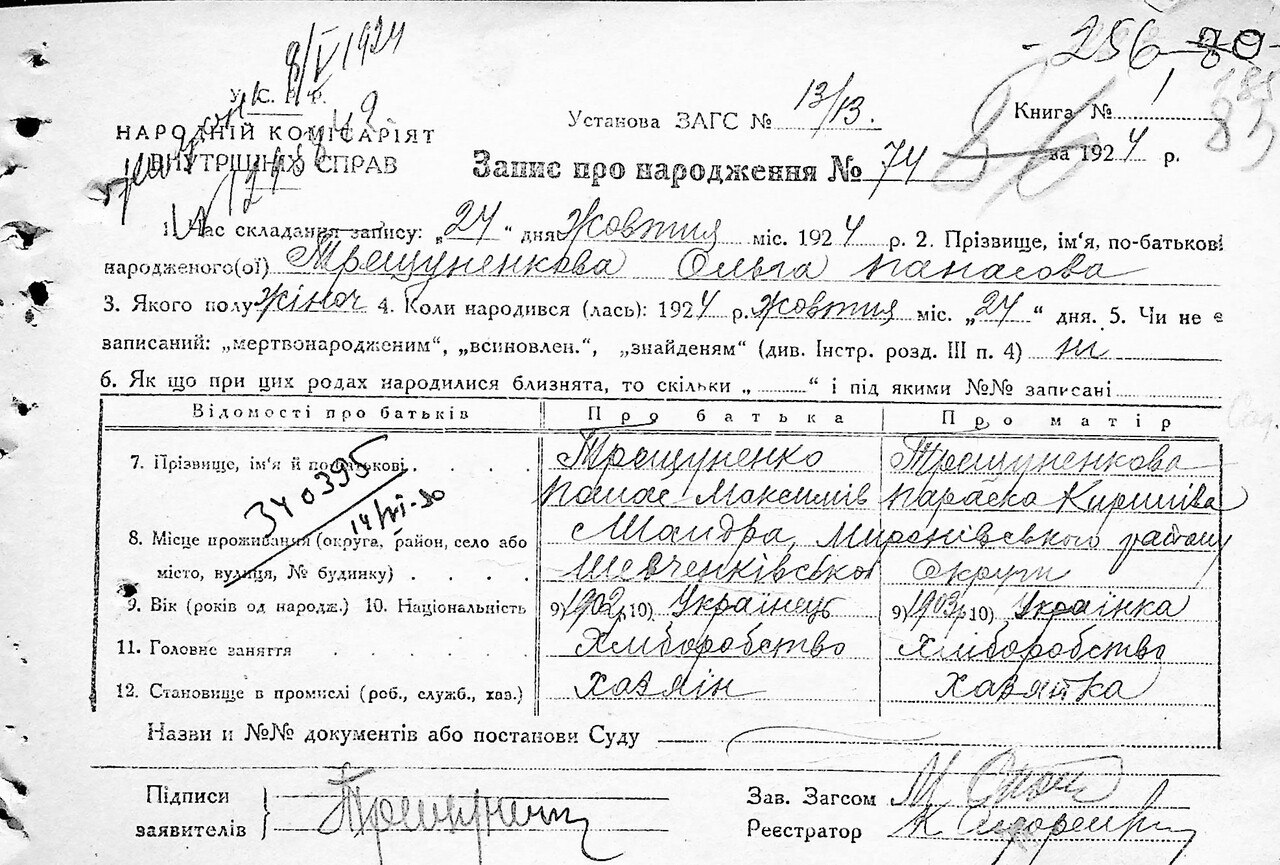 - 256 80
8/V 1924
У. С. Р. Р.
НАРОДНІЙ КОМІСАРІЯТ
ВНУТРІШНІХ СПРАВ
Установа ЗАГС № 13/13.
Книга № 1
83
Запис про народження № 74 за 1924 р.
1. Час складання запису: „24“ дня Жовтня міс. 1924 р. 2. Прізвище, ім‘я, по-батькові
народженого(ої) Трещуненкова Ольга Панасова
3. Якого полу жіноч 4. Коли народився (лась): 1924 р. Жовтня міс. „24“ дня. 5. Чи не є
записаний: „мертвонародженим“, „всиновлен.“, „знайденям“ (див. Інстр. розд. III п. 4) ні
6. Як що при цих родах народилися близнята, то скільки „ “ і під якими №№ записані
Відомості про батьків Про батька Про матір
7. Прізвище, ім‘я й по-батькові Трещуненко Трещуненкова
Панас Максимів Параска Киршіва
340395
14/VI-80
8. Місце проживання (округа, район, село або с Шандра, Миронівського району
місто, вулиця, № будинку) Шевченківської Округи
9. Вік (років од народж.) 10. Національність 9) 1902 р. 10) Українець 9) 1903 р. 10) Українка
11. Головне заняття Хліборобство Хліборобство
12. Становище в промислі (роб., служб., хаз.) хазяін хазяйка
Назви и №№ документів або постанови Суду
Підписи
заявителів
Зав. Загсом
Реєстратор